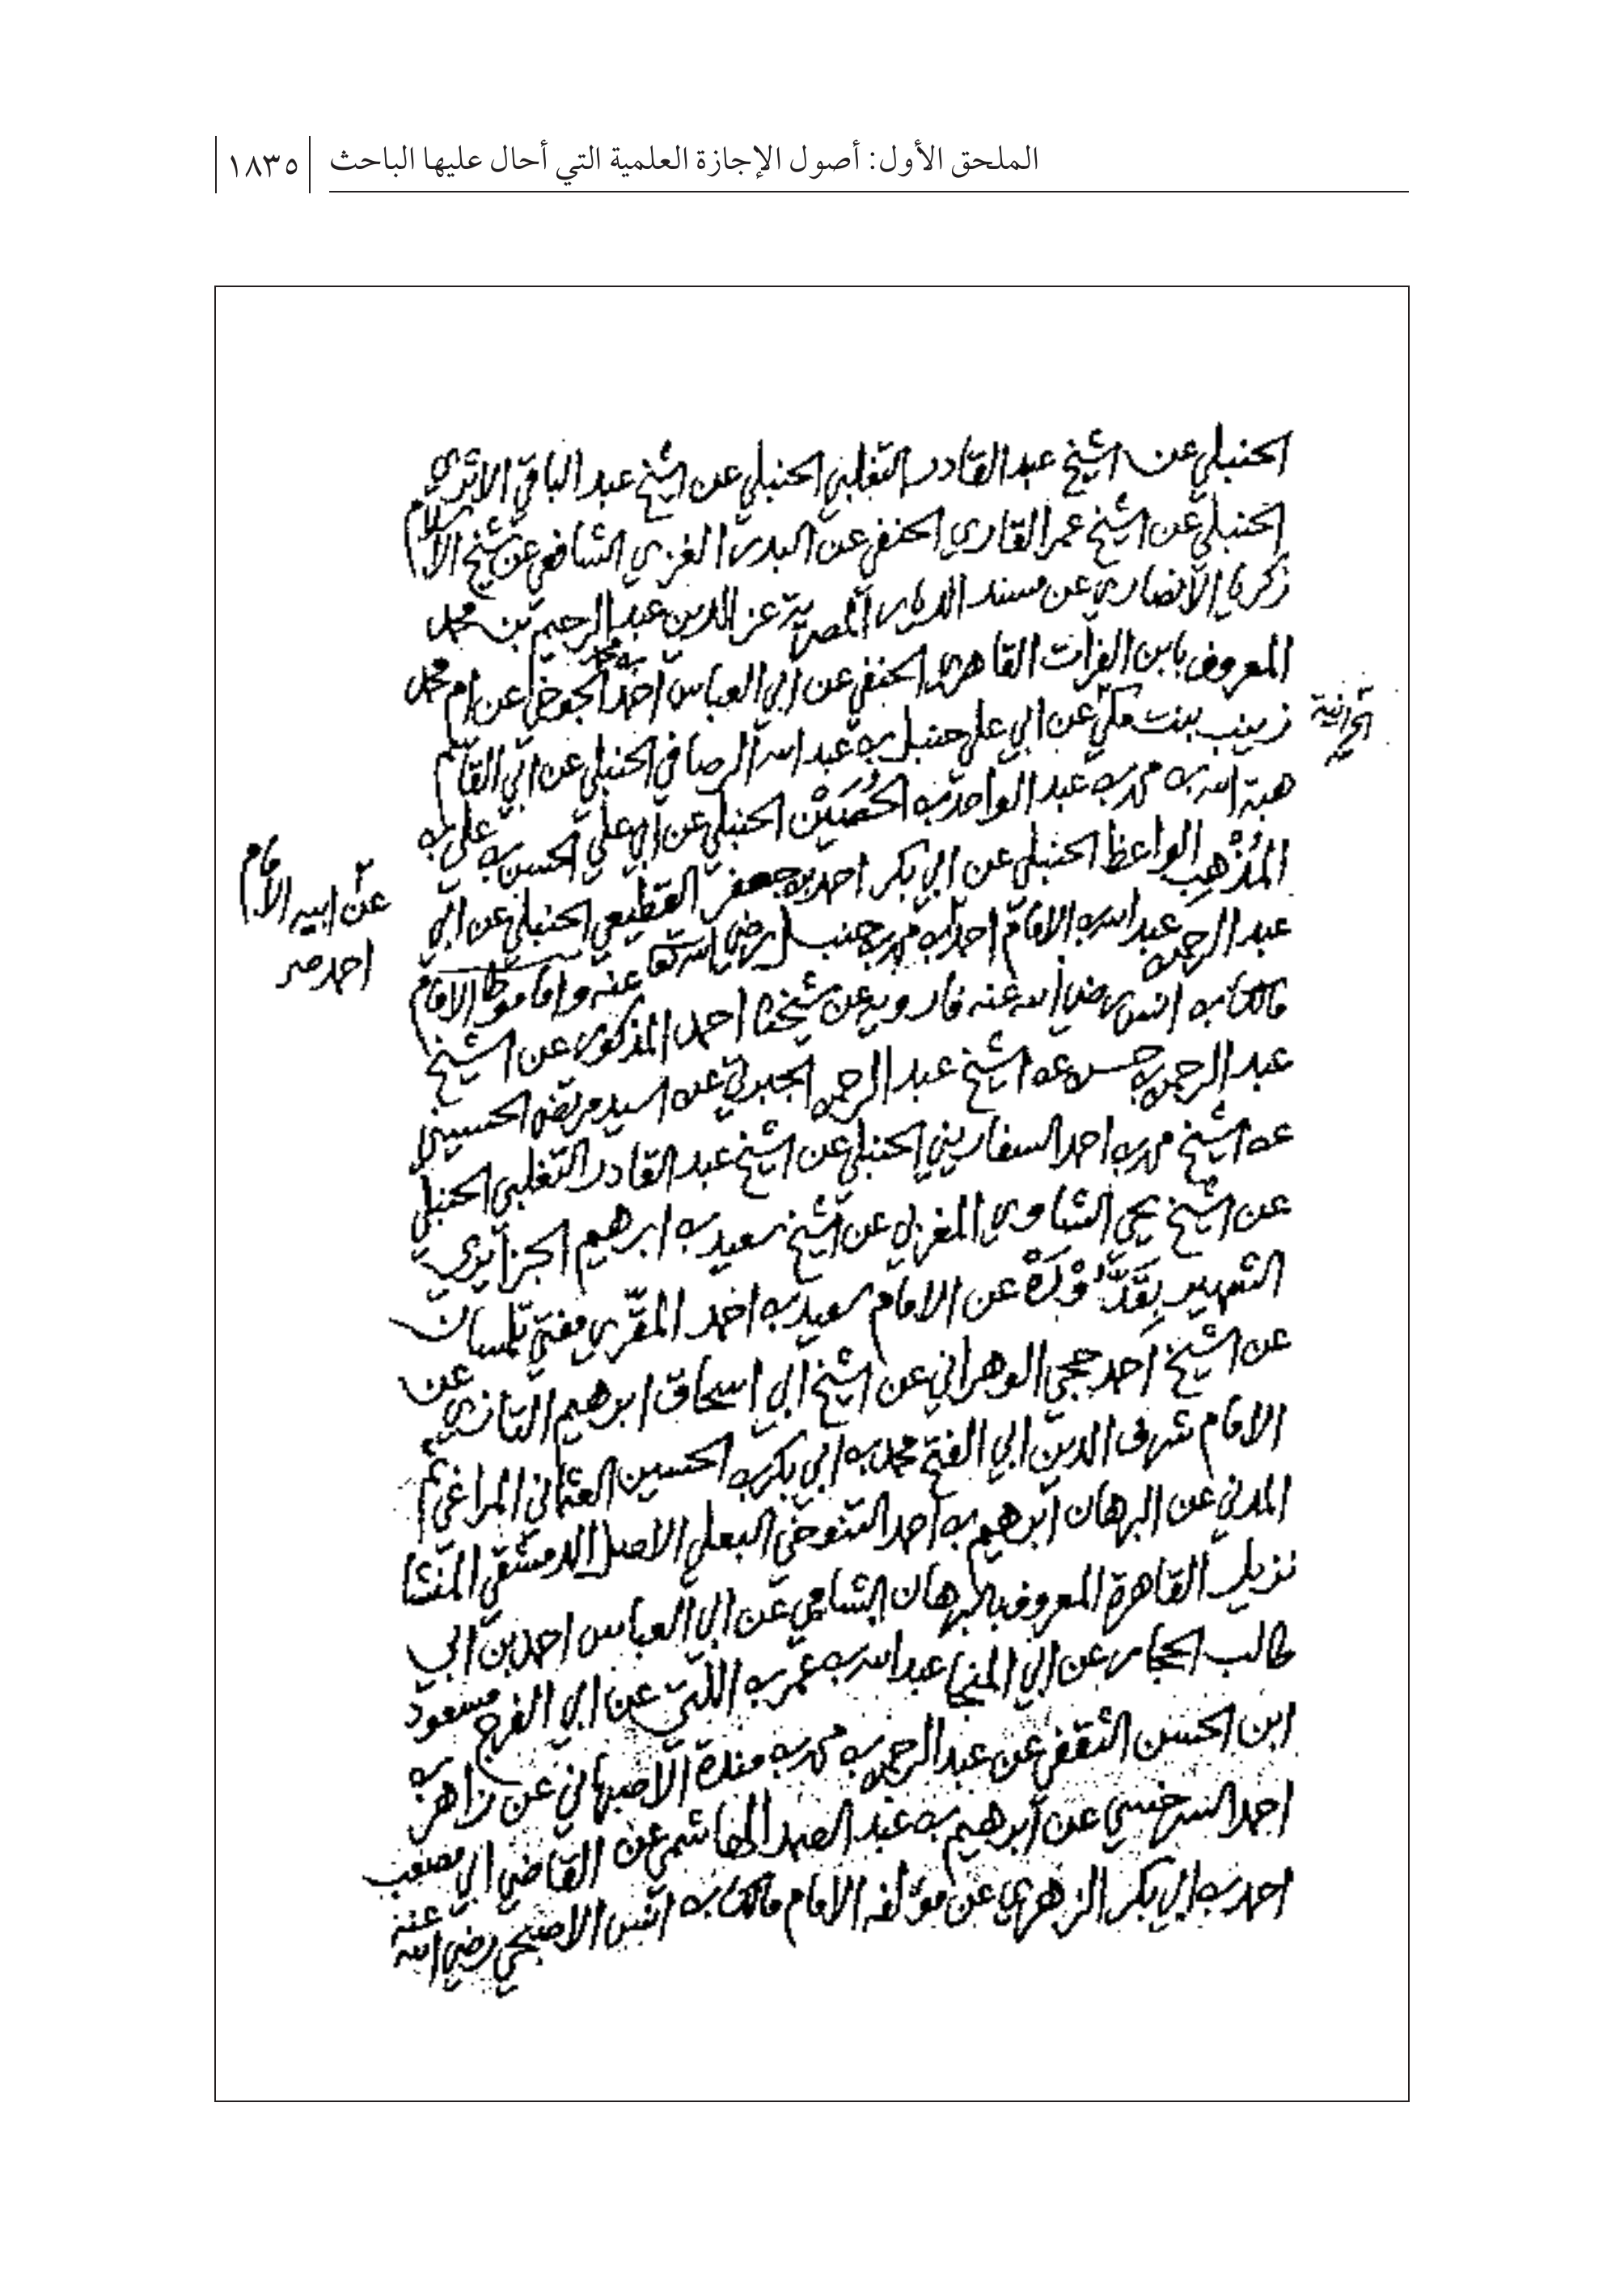 الملحق الأول: أصول الإجازة العلمية التي أحال عليها الباحث
١٨٣٥
الحنبلي عن الشيخ عبد القادر التغلبي الحنبلي عن الشيخ عبد الباقي الاثري
الحنبلي عن الشيخ عمر القاري الحنفي عن البدر الغزي الشافعي عن شيخ الاسلام
زكريا الانصاري عن مسند الديار المصرية عز الدين عبد الرحيم بن محمد
المعروف بابن الفرات القاهري الحنفي عن ابي العباس احمد بن محمد الجوخي عن ام محمد
زينب بنت مكي عن ابي علي حنبل بن عبد الله الرصافي الحنبلي عن ابي القاسم
الحرانية
هبة الله بن محمد بن عبد الواحد بن الحُصَيْن الحنبلي عن ابي علي الحسن بن علي بن
المُذْهِب الواعظ الحنبلي عن ابي بكر احمد بن جعفر القطيعي الحنبلي عن ابي
عبد الرحمن عبد الله بن الامام احمد بن محمد بن حنبل رضي الله تعا عنه واما موطا الامام
عن ابيه الامام
احمد صح
مالك بن انس رضي الله عنه فارويه عن شيخنا احمد المذكور عن الشيخ
عبد الرحمن بن حسن عن الشيخ عبد الرحمن الجبرتي عن السيد مرتضى الحسيني
عن الشيخ محمد بن احمد السفاريني الحنبلي عن الشيخ عبد القادر التغلبي الحنبلي
عن الشيخ يحي الشاوي المغربي عن الشيخ سعيد بن ابرهيم الجزايري
الشهير بِقَدُّوْرَةْ عن الامام سعيد بن احمد المقّري مفتي تلمسان
عن الشيخ احمد حجي الوهراني عن الشيخ ابي اسحاق ابرهيم التازي عن
الامام شرف الدين ابي الفتح محمد بن ابي بكر بن الحسين العثماني المراغي ثم
المدني عن البرهان ابرهيم بن احمد التنوخي البعلي الاصل الدمشقي المنشا
نزيل القاهرة المعروف بالبرهان الشامي عن ابي العباس احمد بن ابي
طالب الحجار عن ابي المنجا عبد الله بن عمر بن اللتي عن ابي الفرج مسعود
ابن الحسن الثقفي عن عبد الرحمن بن محمد بن مندة الاصبهاني عن زاهر بن
احمد السرخسي عن ابرهيم بن عبد الصمد الهاشمي عن القاضي ابي مصعب
احمد بن ابي بكر الزهري عن مؤلفه الامام مالك بن انس الاصبحي رضي الله عنه